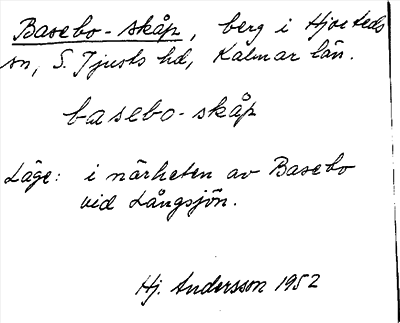 Basebo-skåp, berg i Hjorteds
sn, S. Tjusts hd, Kalmar län.
basebo-skåp
Läge: i närheten av Basebo
vid Långsjön.
Hj. Andersson 1952